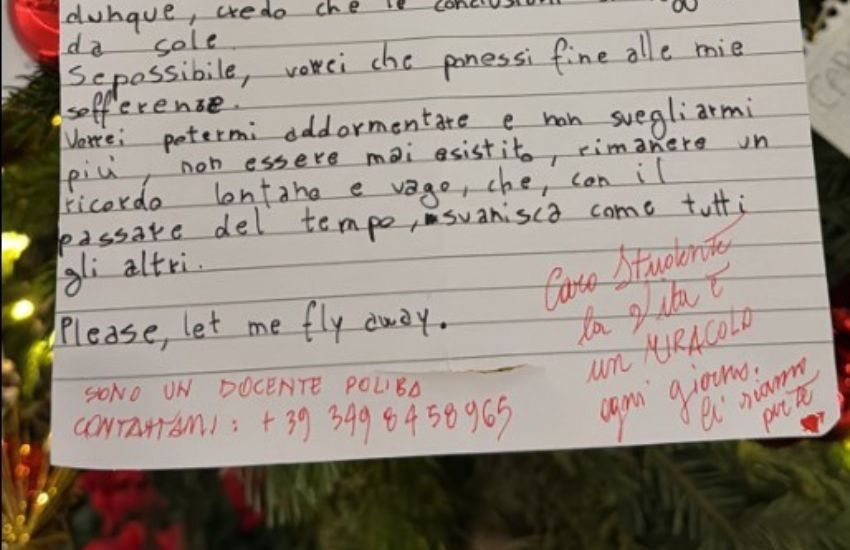 dunque, credo che le conclusioni
da sole.
Se possibile, vorrei che ponessi fine alle mie
sofferenze.
Vorrei potermi addormentare e non svegliarmi
più, non essere mai esistito, rimanere un
ricordo lontano e vago, che, con il
passare del tempo, svanisca come tutti
gli altri.
Please, let me fly away.
Caro Studente
la Vita è
un MIRACOLO
ogni giorno.
Ci siamo
per te
SONO UN DOCENTE POLIBA
CONTATTAMI: +39 349 8458965